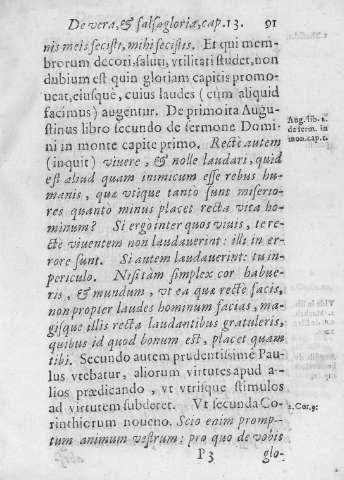 De vera, & falsa gloria, cap. 13. 91
nis meis fecistis, mihi fecistis. Et qui mem-
brorum decori, saluti, vtilitati studet, non
dubium est quin gloriam capitis promo-
ueat, eiusque, cuius laudes (cum aliquid
facimus) augentur. De primo ita Augu-
stinus libro secundo de sermone Domi-
ni in monte capite primo. Recte autem
(inquit) viuere, & nolle laudari, quid
est aliud quam inimicum esse rebus hu-
manis, quæ vtique tanto sunt miserio-
res quanto minus placet recta vita ho-
minum? Si ergo inter quos viuis, te re-
cte viuentem non laudauerint: illi in er-
rore sunt. Si autem laudauerint: tu in
periculo. Nisi tàm simplex cor habue-
ris, & mundum, vt ea quæ recte facis,
non propter laudes hominum facias, ma-
gisque illis recta laudantibus gratuleris,
quibus id quod bonum est, placet quam
tibi. Secundo autem prudentissimè Pau-
lus vtebatur, aliorum virtutes apud a-
lios prædicando, vt vtrisque stimulos
ad virtutem subderet. Vt secunda Co-
rinthiorum noueno. Scio enim promp-
tum animum vestrum: pro quo de vobis
P 3 glo-
Aug. lib. 2.
de serm. in
mon. cap. 1.
2. Cor. 9: